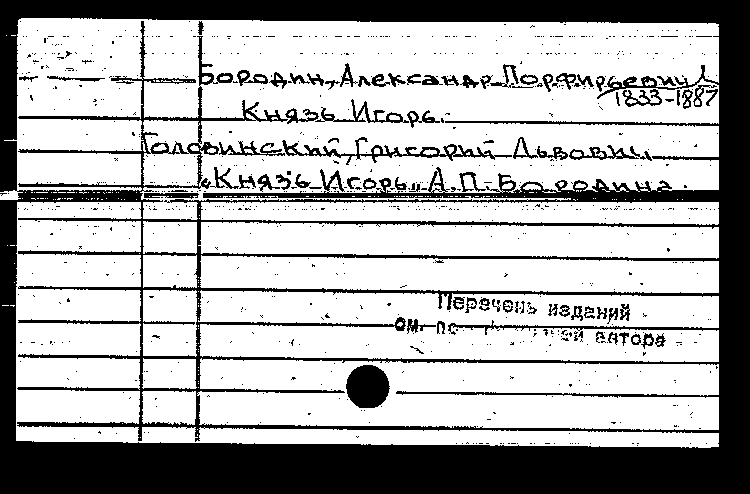 Бородин, Александр Порфирьевич,
1833-1887
Князь Игорь.
Головинский, Григорий Львович.
"Князь Игорь" А.П. Бородина.
Перечень изданий
см. по автора